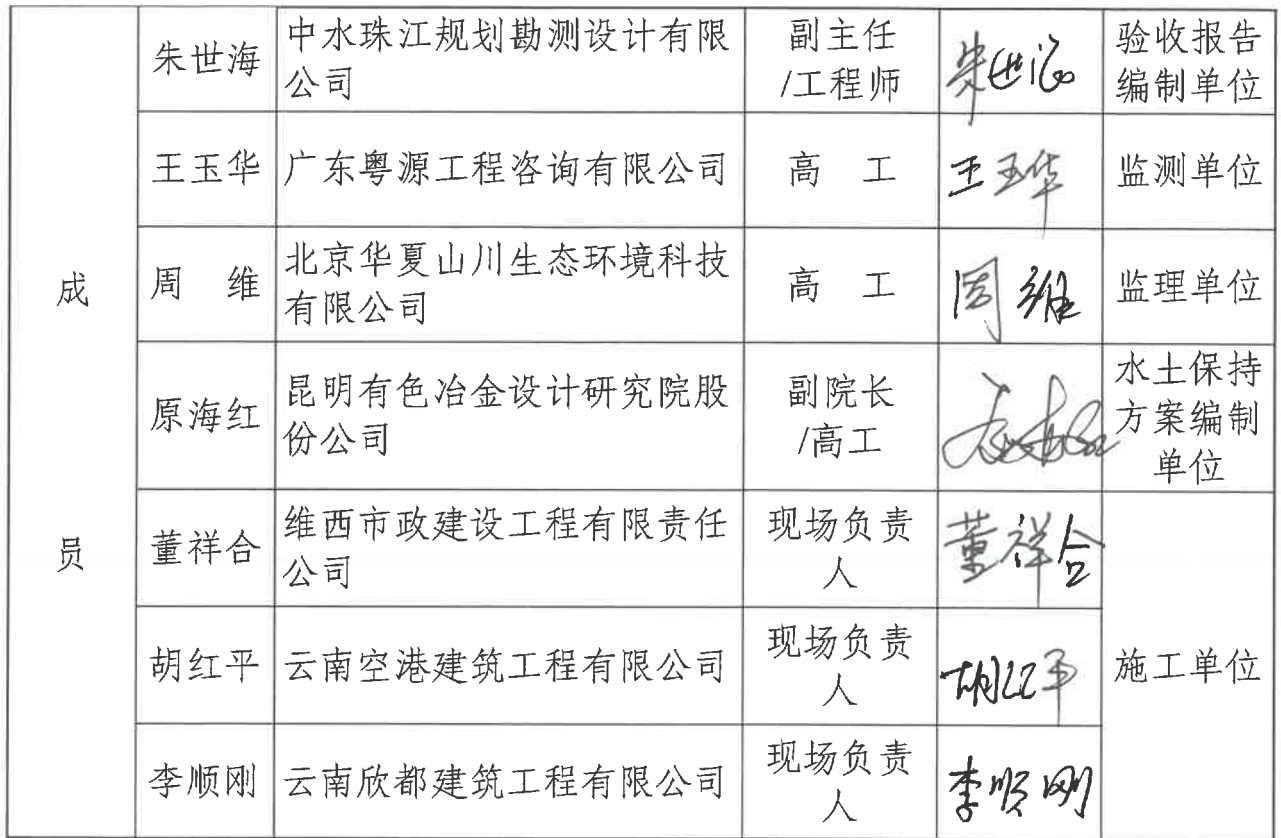 成员
朱世海
中水珠江规划勘测设计有限
公司
副主任
/工程师
朱世海
验收报告
编制单位
王玉华
广东粤源工程咨询有限公司
高 工
王玉华
监测单位
周 维
北京华夏山川生态环境科技
有限公司
高 工
周维
监理单位
原海红
昆明有色冶金设计研究院股
份公司
副院长
/高工
原海红
水土保持
方案编制
单位
董祥合
维西市政建设工程有限责任
公司
现场负责
人
董祥合
施工单位
胡红平
云南空港建筑工程有限公司
现场负责
人
胡红平
李顺刚
云南欣都建筑工程有限公司
现场负责
人
李顺刚